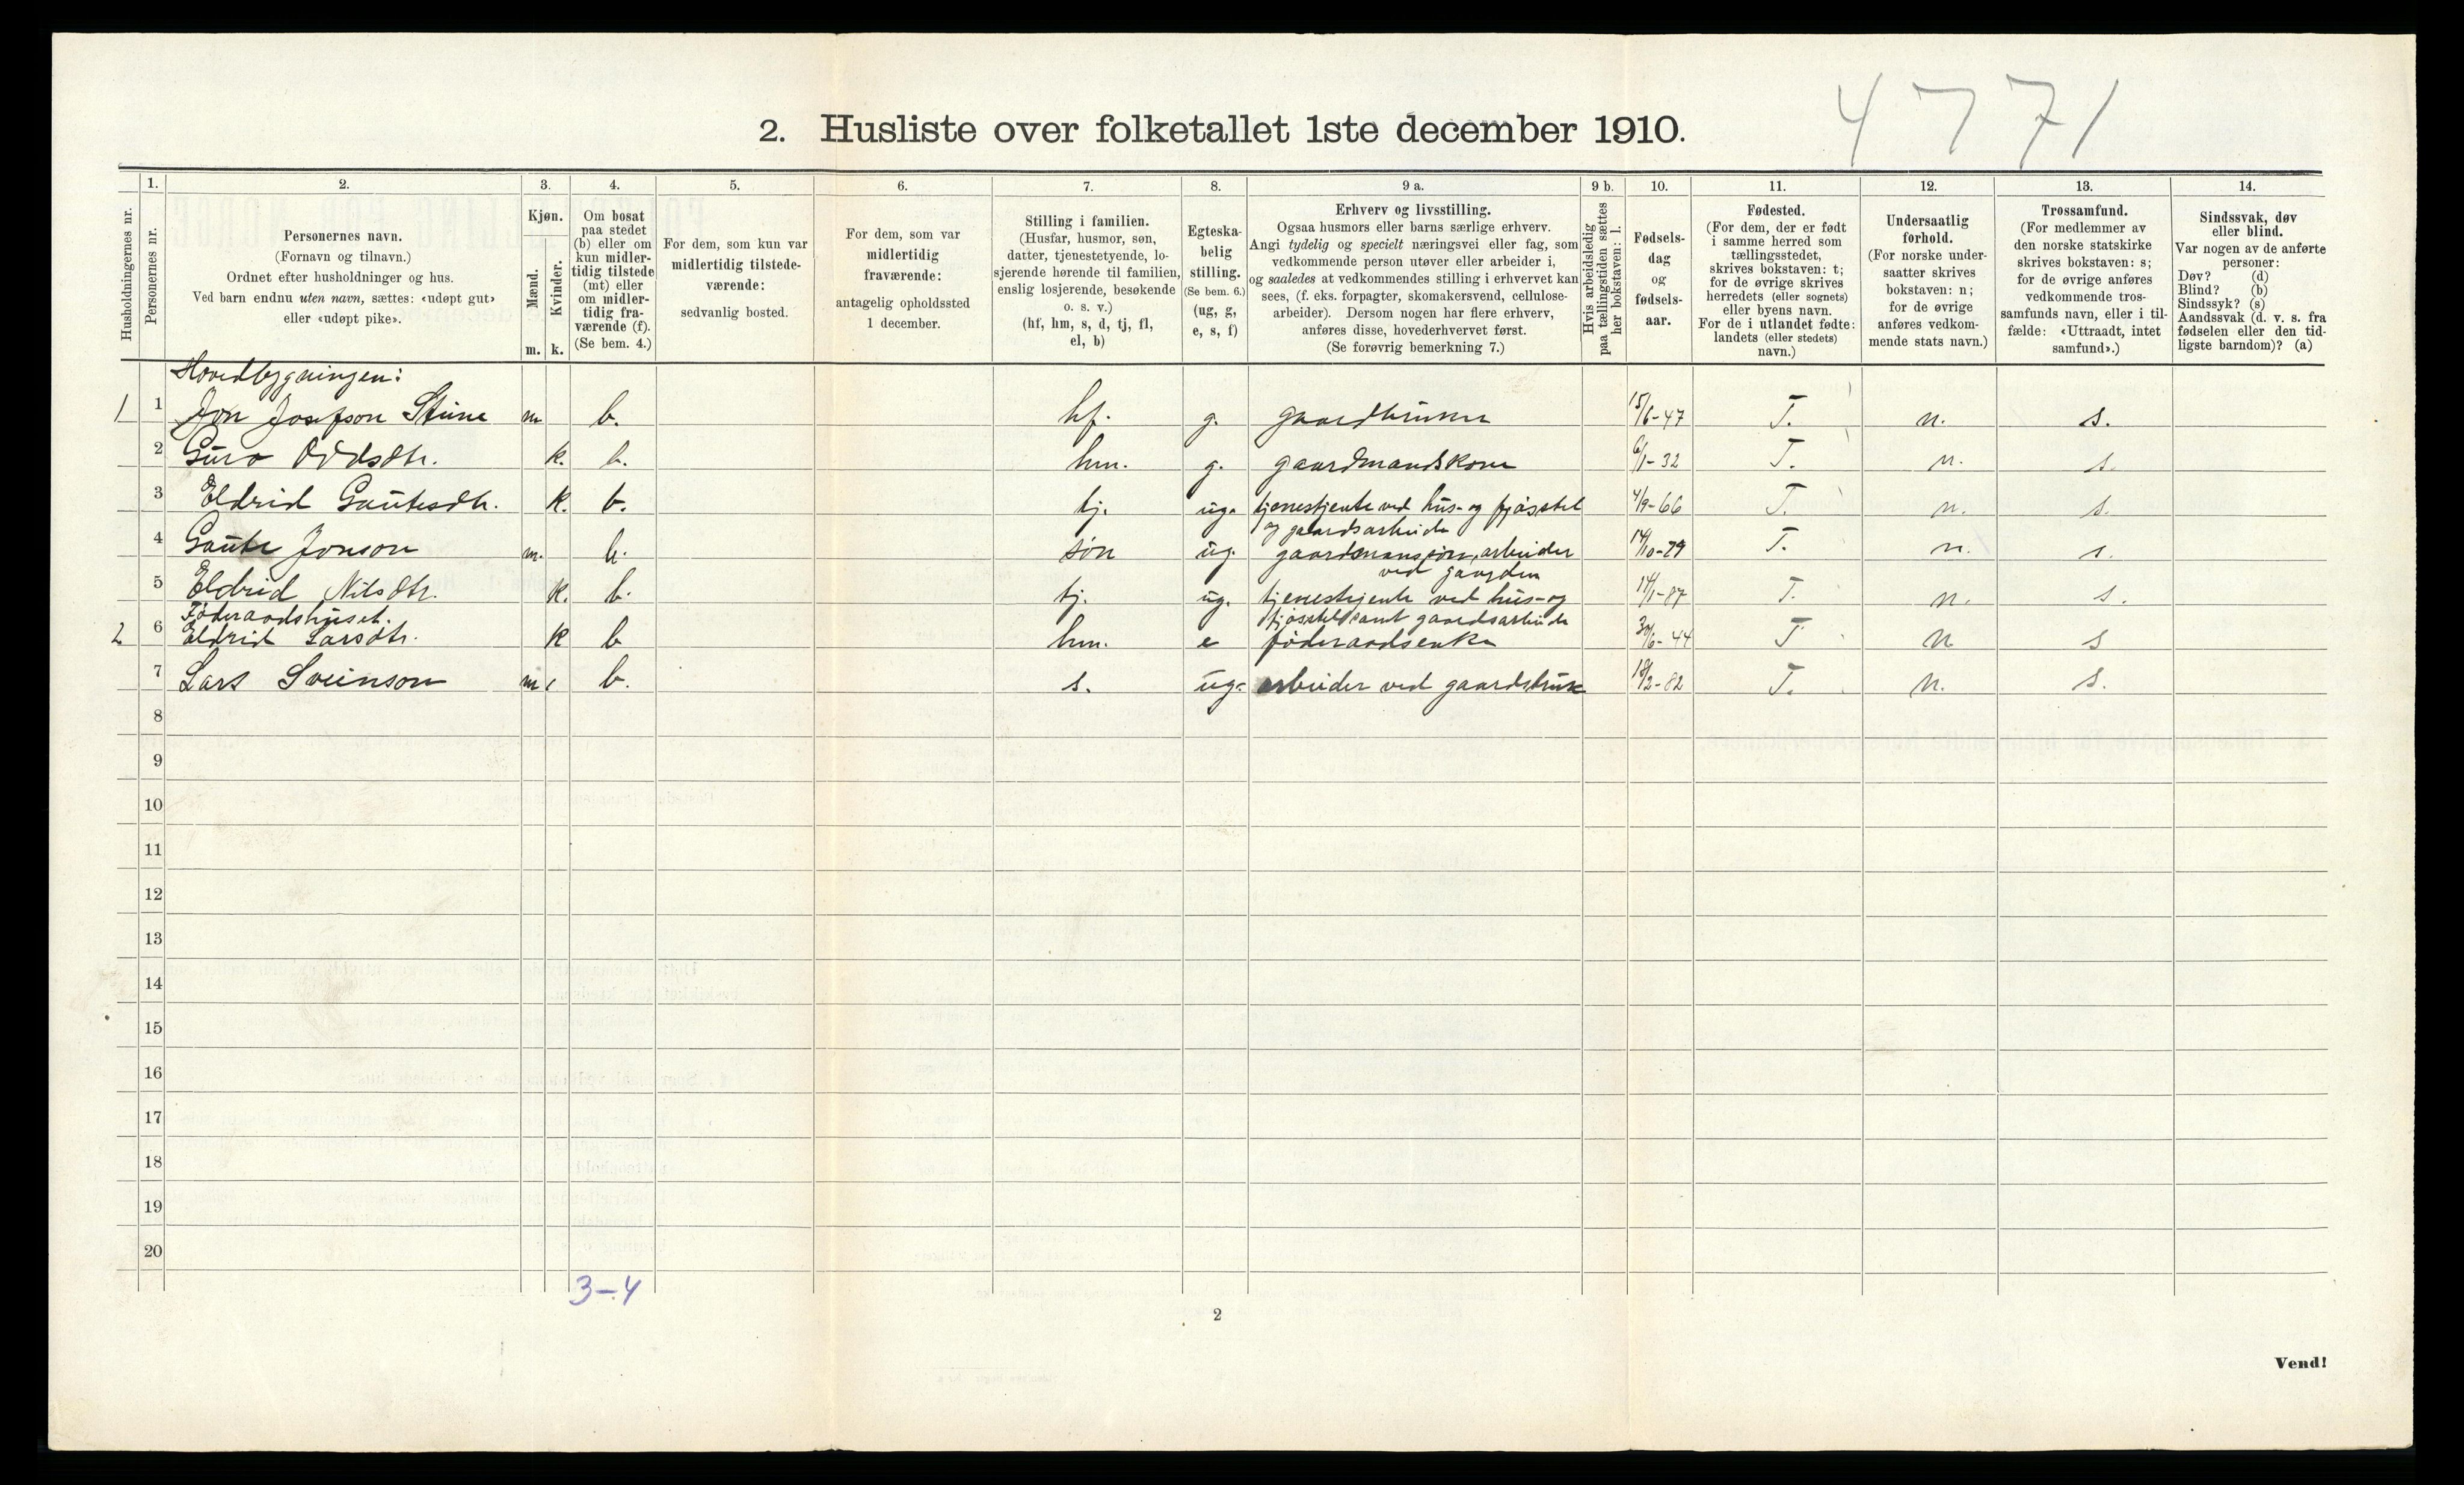 4771
2. Husliste over folketallet 1ste december 1910.
Husholdningernes nr.
1.
Personernes nr.
2.
Personernes navn.
(Fornavn og tilnavn.)
Ordnet efter husholdninger og hus.
Ved barn endnu uten navn, sættes: «udøpt gut»
eller «udøpt pike».
3.
Kjøn.
Mænd.
Kvinder.
m. k.
4.
Om bosat
paa stedet
(b) eller om
kun midler-
tidig tilstede
(mt) eller
om midler-
tidig fra-
værende (f).
(Se bem. 4.)
5.
For dem, som kun var
midlertidig tilstede-
værende:
sedvanlig bosted.
6.
For dem, som var
midlertidig
fraværende:
antagelig opholdssted
1 december.
7.
Stilling i familien.
(Husfar, husmor, søn,
datter, tjenestetyende, lo-
sjerende hørende til familien,
enslig losjerende, besøkende
o. s. v.)
(hf, hm, s, d, tj, fl,
el, b)
8.
Egteska-
belig
stilling.
(Se bem. 6.)
(ug, g,
e, s, f)
9 a.
Erhverv og livsstilling.
Ogsaa husmors eller barns særlige erhverv.
Angi tydelig og specielt næringsvei eller fag, som
vedkommende person utøver eller arbeider i,
og saaledes at vedkommendes stilling i erhvervet kan
sees, (f. eks. forpagter, skomakersvend, cellulose-
arbeider). Dersom nogen har flere erhverv,
anføres disse, hovederhvervet først.
(Se forøvrig bemerkning 7.)
9 b.
Hvis arbeidsledig
paa tællingstiden sættes
her bokstaven: l.
10.
Fødsels-
dag
og
fødsels-
aar.
11.
Fødested.
(For dem, der er født
i samme herred som
tællingsstedet,
skrives bokstaven: t;
for de øvrige skrives
herredets (eller sognets)
eller byens navn.
For de i utlandet fødte:
landets (eller stedets)
navn.)
12.
Undersaatlig
forhold.
(For norske under-
saatter skrives
bokstaven: n;
for de øvrige
anføres vedkom-
mende stats navn.)
13.
Trossamfund.
(For medlemmer av
den norske statskirke
skrives bokstaven: s;
for de øvrige anføres
vedkommende tros-
samfunds navn, eller i til-
fælde: «Uttraadt, intet
samfund».)
14.
Sindssvak, døv
eller blind.
Var nogen av de anførte
personer:
Døv? (d)
Blind? (b)
Sindssyk? (s)
Aandssvak (d. v. s. fra
fødselen eller den tid-
ligste barndom)? (a)
Hovedbygningen:
1 1 Jon Josefson m. b. hf. g. gaardbruker 15/6-47 T. n. s.
2 Guro Oddsdtr. k. b. hm. g. gaardmandskone 6/1-32 T. n. s.
3 Eldrid Gautesdtr. k. b. tj. ug. tjenestjente ved hus- og fjøsstel
og gaardsarbeide 4/9-66 T. n. s.
4 Gaute Jonson m. b. søn ug. gaardmanssøn, arbeider
ved gaarden 14/10-79 T. n. s.
5 Eldrid Nilsdtr. k. b. tj. ug. tjenestejente ved hus- og
fjøsstel samt gaardsarbeide 14/1-87 T. n. s.
Føderaadshuset.
2 6 Eldrid Larsdtr. k b hm. e føderaadsenke 30/6-44 T n s
7 Lars Sveinson m. b. s. ug. arbeider ved gaardsbruk 18/2-82 T. n. s.
8
9
10
11
12
13
14
15
16
17
18
19
20
3-4
2
Vend!